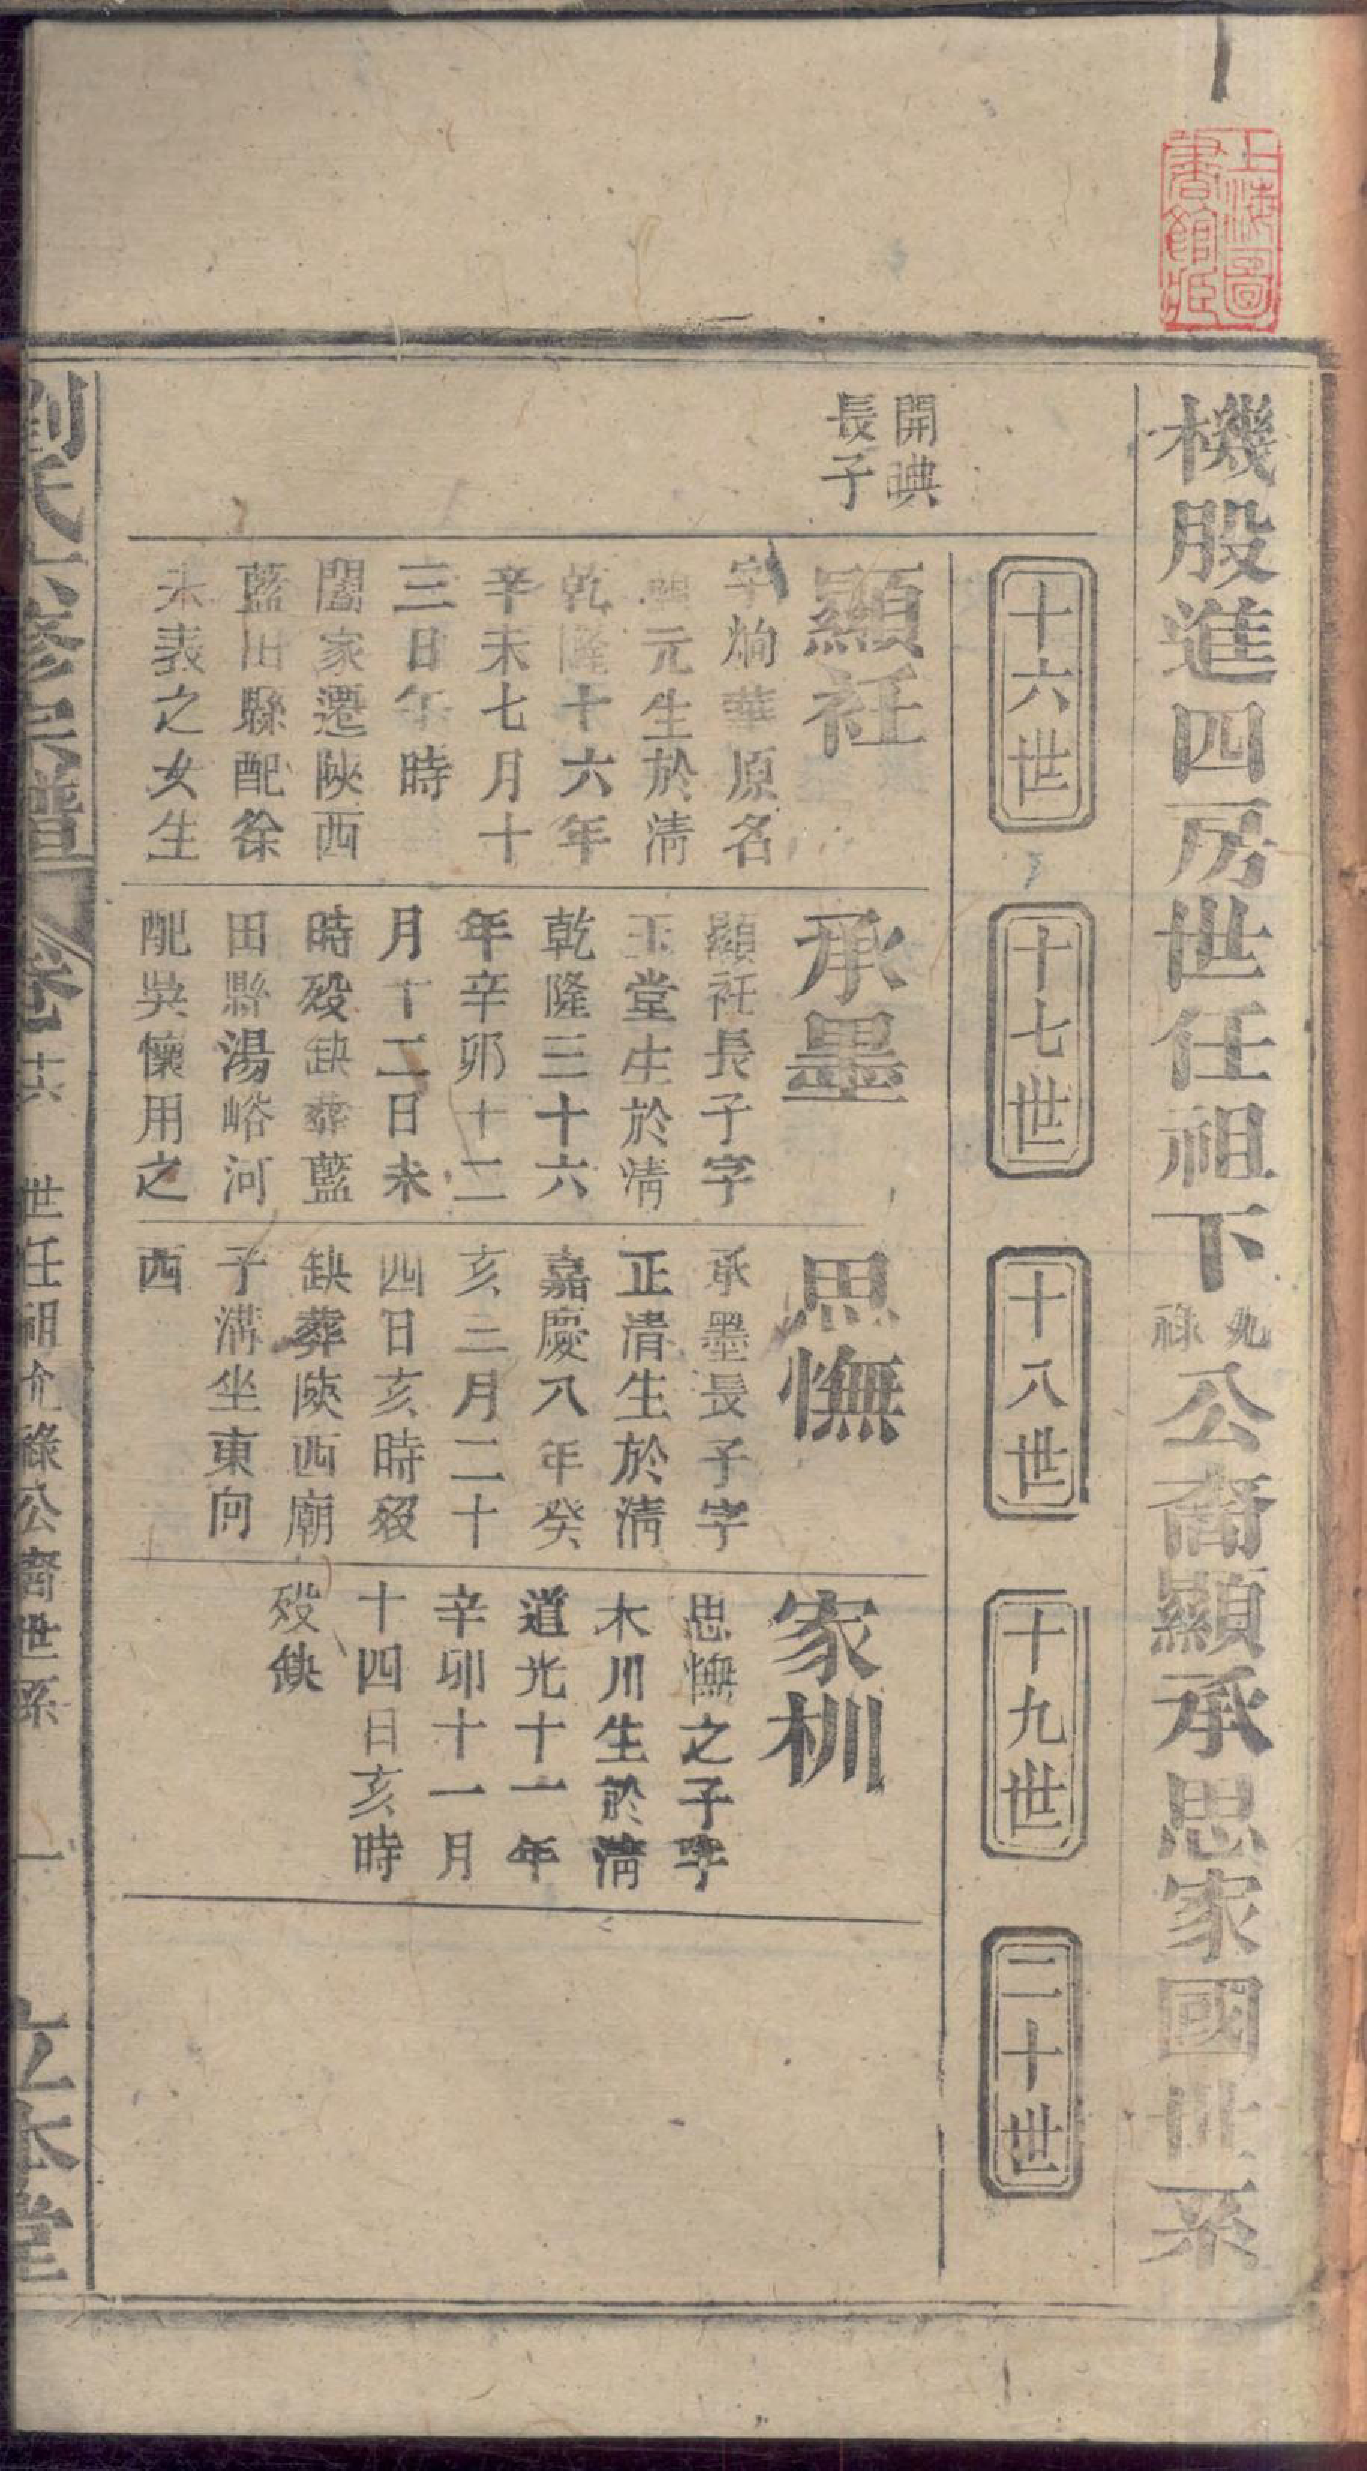 上海圖
書館藏
機股進四房世任祖下九祿公裔顯承思家國世系
十六世
十七世
十八世
十九世
二十世
開典
長子
顯衽
字炯華原名
元生於清
乾隆十六年
辛未七月十
三日午時
闔家遷陝西
藍田縣配徐
未表之女生
承墨
顯衽長子字
玉堂生於清
乾隆三十六
年辛卯十二
月十二日未
時歿缺葬藍
田縣湯峪河
配吳懷用之
思憮
承墨長子字
正清生於清
嘉慶八年癸
亥三月二十
四日亥時歿
缺葬陝西廟
子溝坐東向
西
家栁
思憮之子字
木川生於清
道光十一年
辛卯十一月
十四日亥時
歿缺
劉氏六修宗譜
卷十六
世任祖九祿公裔世系
一
立本堂